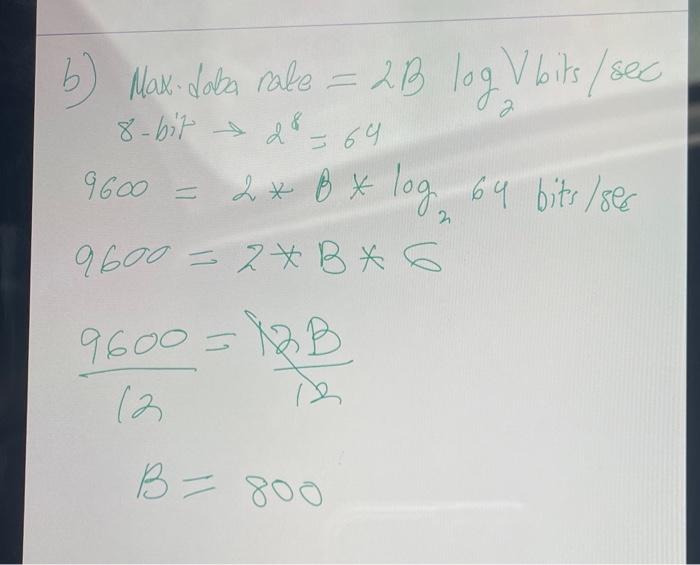 b) Max. data rate = 2B log₂ V bits/sec
8-bit → 2⁸ = 64
9600 = 2 * B * log₂ 64 bits/sec
9600 = 2 * B * 6
9600/12 = 12B/12
B = 800